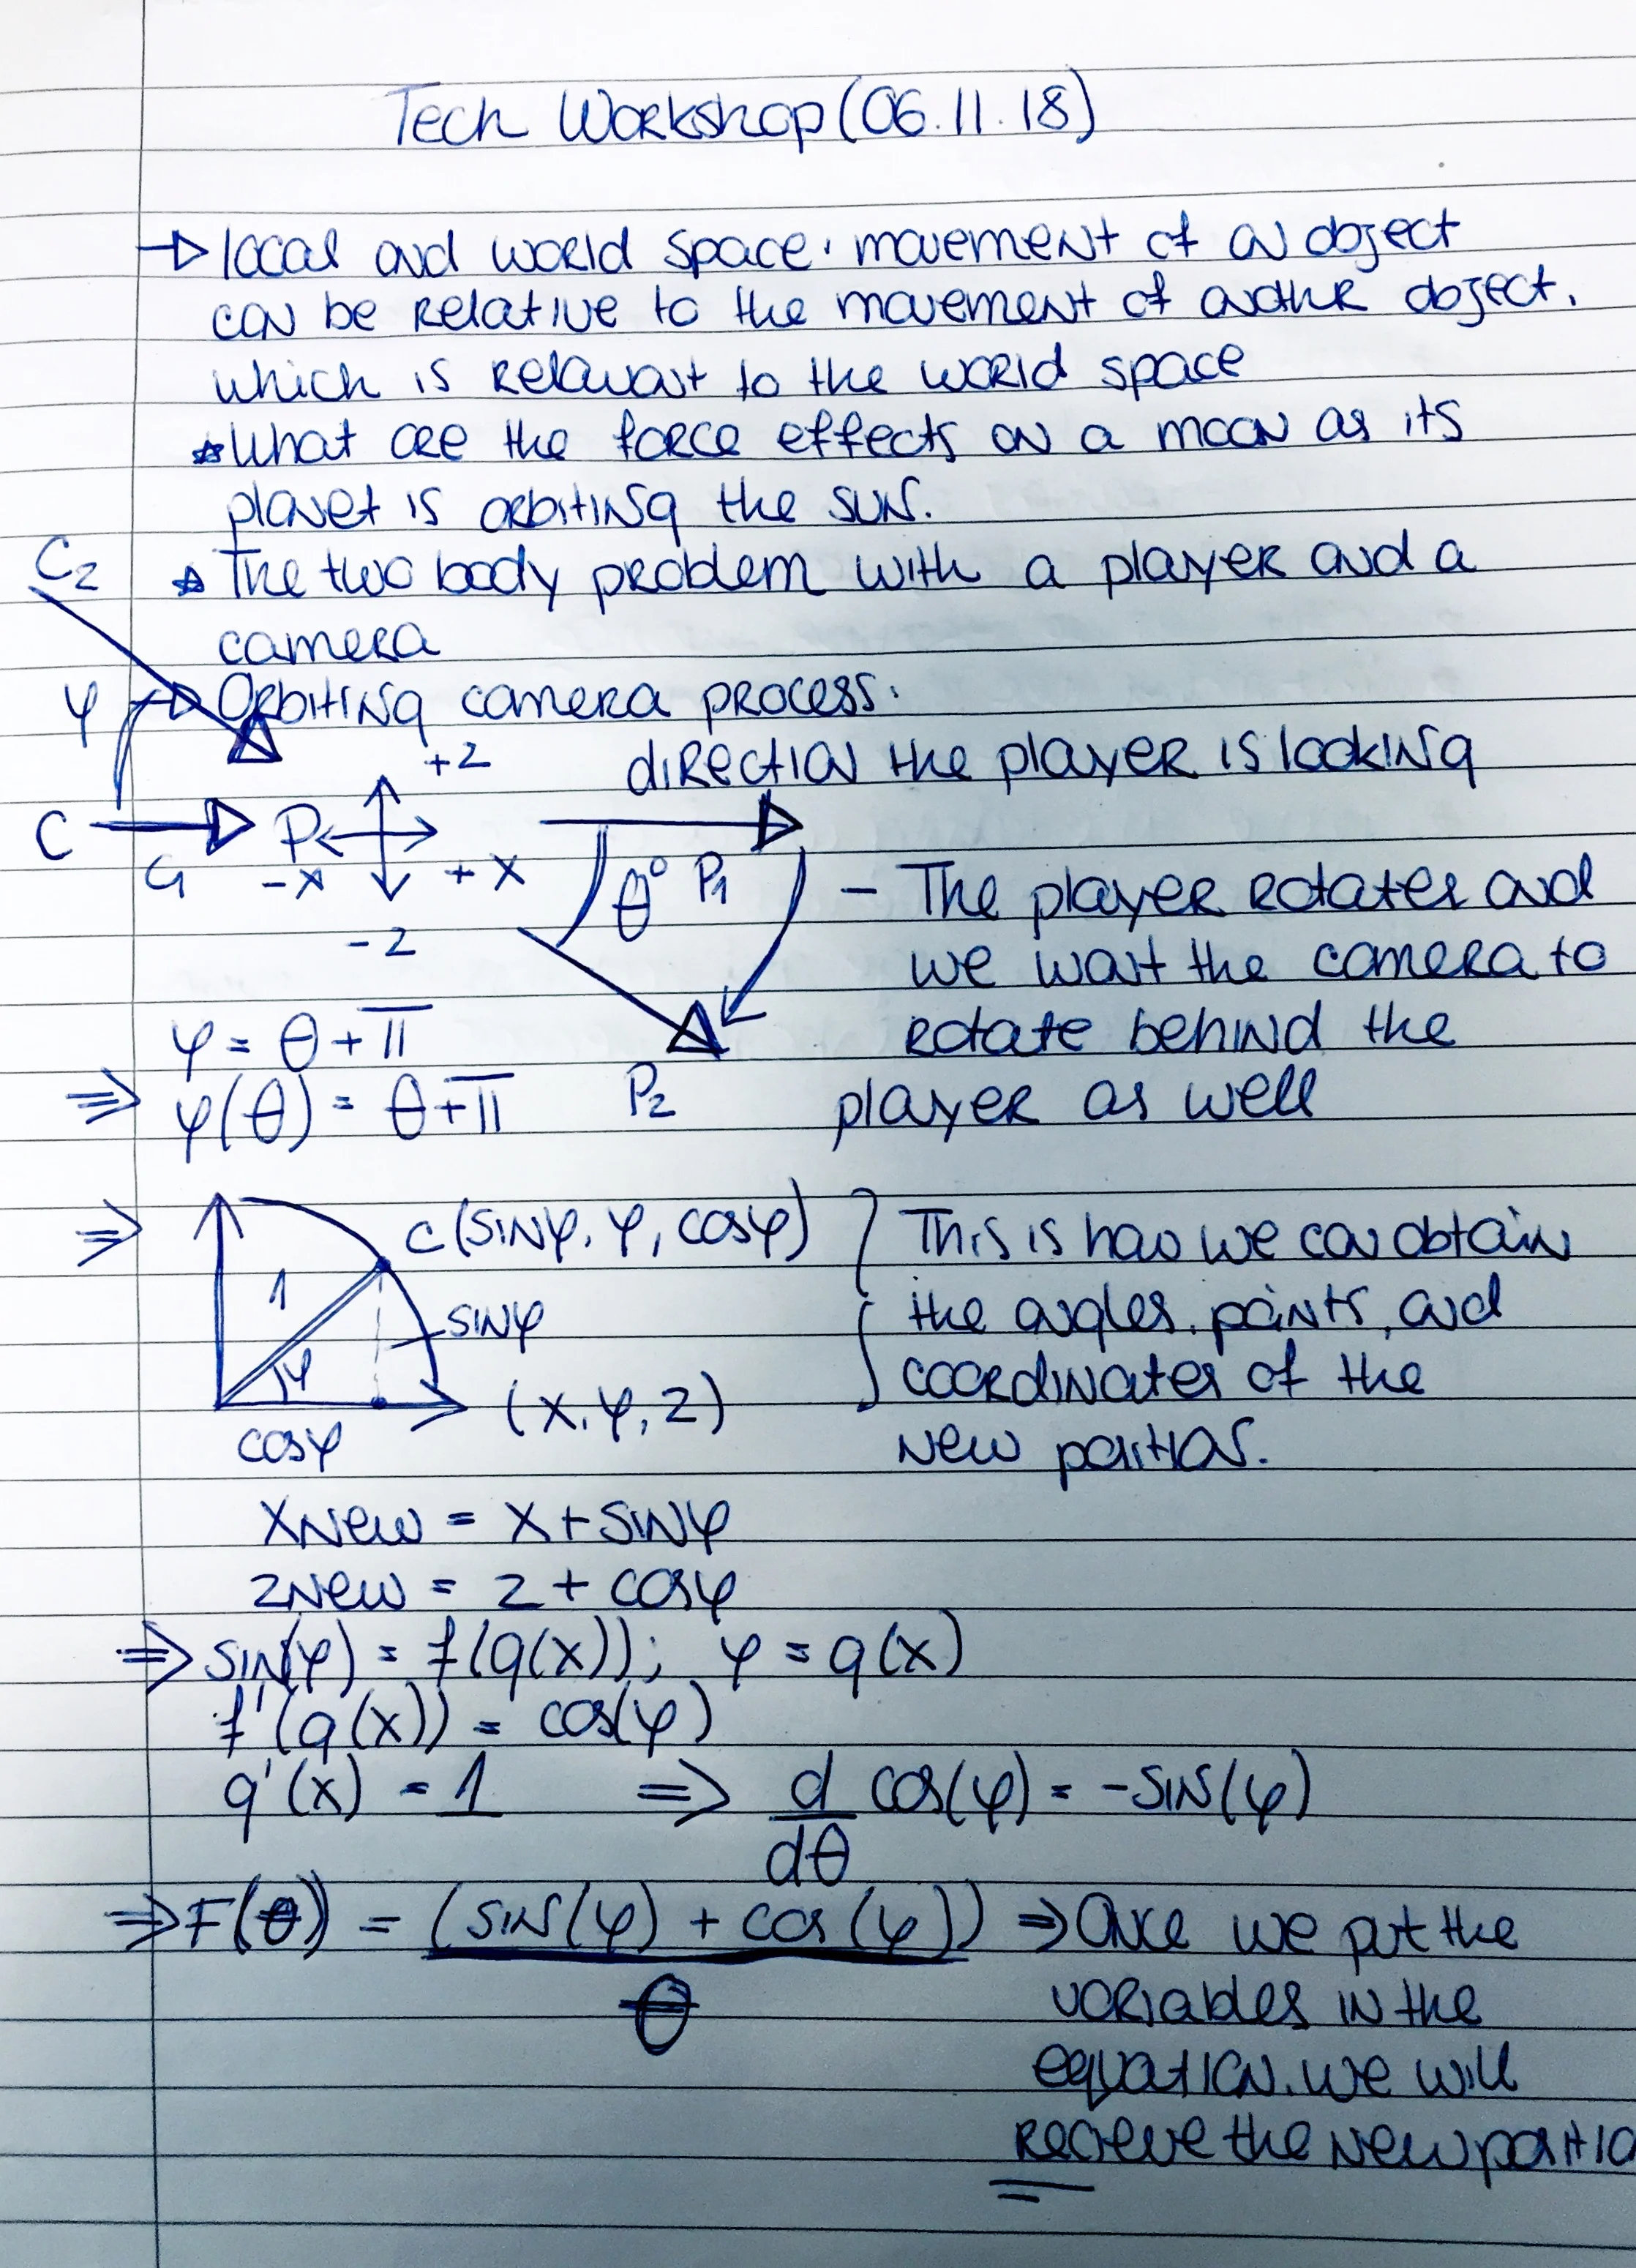 Tech Workshop (06.11.18)
local and world space. movement of an object
can be relative to the movement of another object,
which is relevant to the world space
What are the force effects on a moon as its
planet is orbiting the sun.
C2
The two body problem with a player and a
camera
φ
Orbiting camera process:
direction the player is looking
+z
C P
-x +x
θ° P1
- The player rotates and
-z
we want the camera to
φ = θ + π
rotate behind the
⇒ φ(θ) = θ + π
P2
player as well
⇒ C(sinφ, φ, cosφ)
This is how we can obtain
1
sinφ
the angles, points, and
φ
(x, φ, z)
coordinates of the
cosφ
new position.
xNew = x + sinφ
zNew = z + cosφ
⇒ sin(φ) = f(g(x)); φ = g(x)
f'(g(x)) = cos(φ)
g'(x) = 1 ⇒ d/dθ cos(φ) = -sin(φ)
⇒ F(θ) = (sin(φ) + cos(φ)) ⇒ Once we put the
θ
variables in the
equation. we will
recieve the new positio